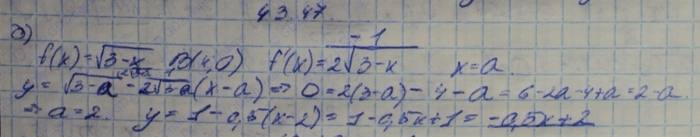 43.47.
б)
f(x)=√3-x B(4;0) f'(x)= -1/2√3-x x=a.
y = √3-a - 1/2√3-a (x-a) ⇒ 0=2(3-a) - 4-a = 6-2a-4+a = 2-a.
⇒ a=2. y = 1-0,5(x-2) = 1-0,5x+1 = -0,5x+2